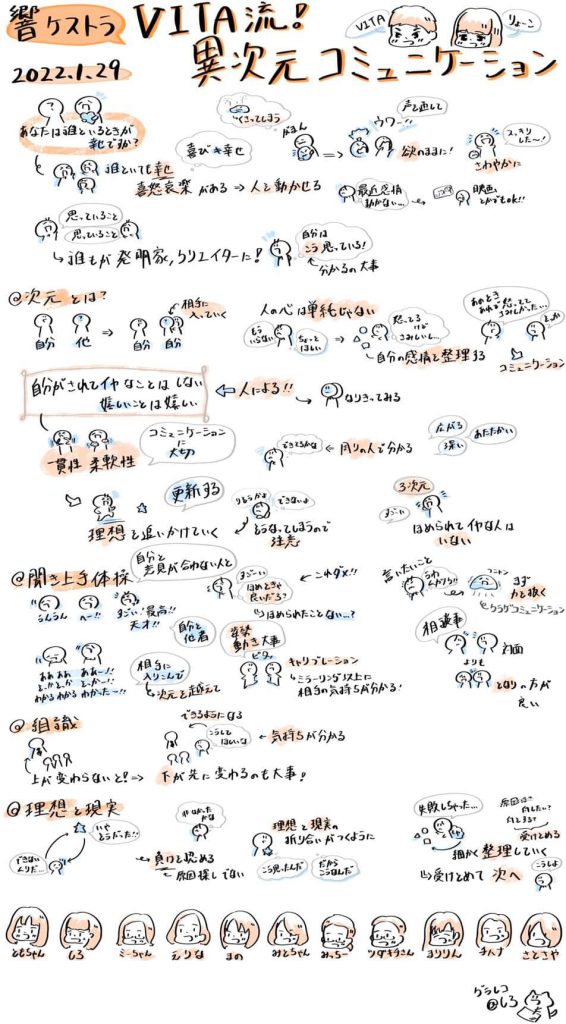 響ケストラ
VITA流!
異次元コミュニケーション
2022.1.29
VITA
りょーこ
あなたは誰といるときが
幸せですか?
誰といても幸せ
喜怒哀楽がある⇒人を動かせる
喜び≠幸せ
くさってしまう
がまん
声を通して
ウワー!!
欲のままに!
スッキリ
した〜!
さわやかに
最近感情
動かない…
映画
とかでもOK!!
思っていること
思っていること
誰もが発明家,クリエイターに!
自分は
こう思っている!
分かるの大事
@次元とは?
自分 他
⇒
自分 自分
相手に
入っていく
人の心は単純じゃない
もう
いらない
ちょっと
ほしい
怒ってる
けど
さみしいし…
自分の感情を整理する
あのとき
あれで怒ってて
さみしかった…
コミュニケーション
自分がされてイヤなことはしない
嬉しいことは嬉しい
人による!!
なりきってみる
一貫性 柔軟性
コミュニケーション
に
大切
できてるかな
←周りの人で分かる
広がる
深い
あたたかい
更新する
理想を追いかけていく
できないよ
どうなってしまうので
注意
3次元
すごーい
ほめられてイヤな人は
いない
@聞き上手体操
自分と
意見が合わない人と
うんうん
へー!!
すごい!最高!!
天才!!
すごーい
ほめときゃ
良いだろ?
←これダメ!!
ほめられたことない…?
言いたいこと
フニャン
まず
力を抜く
クラゲコミュニケーション
ああ ああ
とーか とーか
わかる わかる
ああー!!
とーかー!!
わかったー!!
自分と
他者
相手に
入りこんで
次元を越えて
姿勢
動き大事
ピタッ
キャリブレーション
ミラーリング以上に
相手の気持ちが分かる!
相談事
対面
よりも
となりの方が
良い
@組織
上が変わらないと!⇒
できるようになる
こうして
ほしいな
←気持ちが分かる
下が先に変わるのも大事!
@理想と現実
できない
んりだ…
いや
どうだった!!
やばかった
かな
負けを認める
原因探しでない
理想と現実の
折り合いがつくように
こう思ったんだ
だから
こうなんだ
失敗しちゃった…
原因は?
何したい?
何とする?
受けとめる
細かく整理していく
受けとめて 次へ
こうしよ
ともちゃん
しろ
ミーちゃん
えりな
まの
みとちゃん
みっちー
ツダキヨさん
まりりん
チハナ
さとさや
グラレコ
@しろ